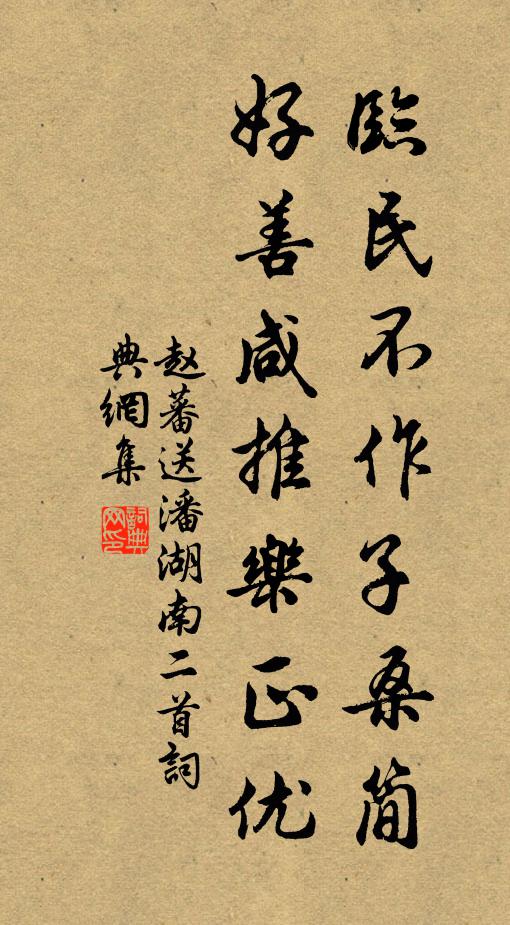 臨民不作子桑简
好善咸推樂正优
赵蕃送潘湖南二首詞
典網集
詞典网印